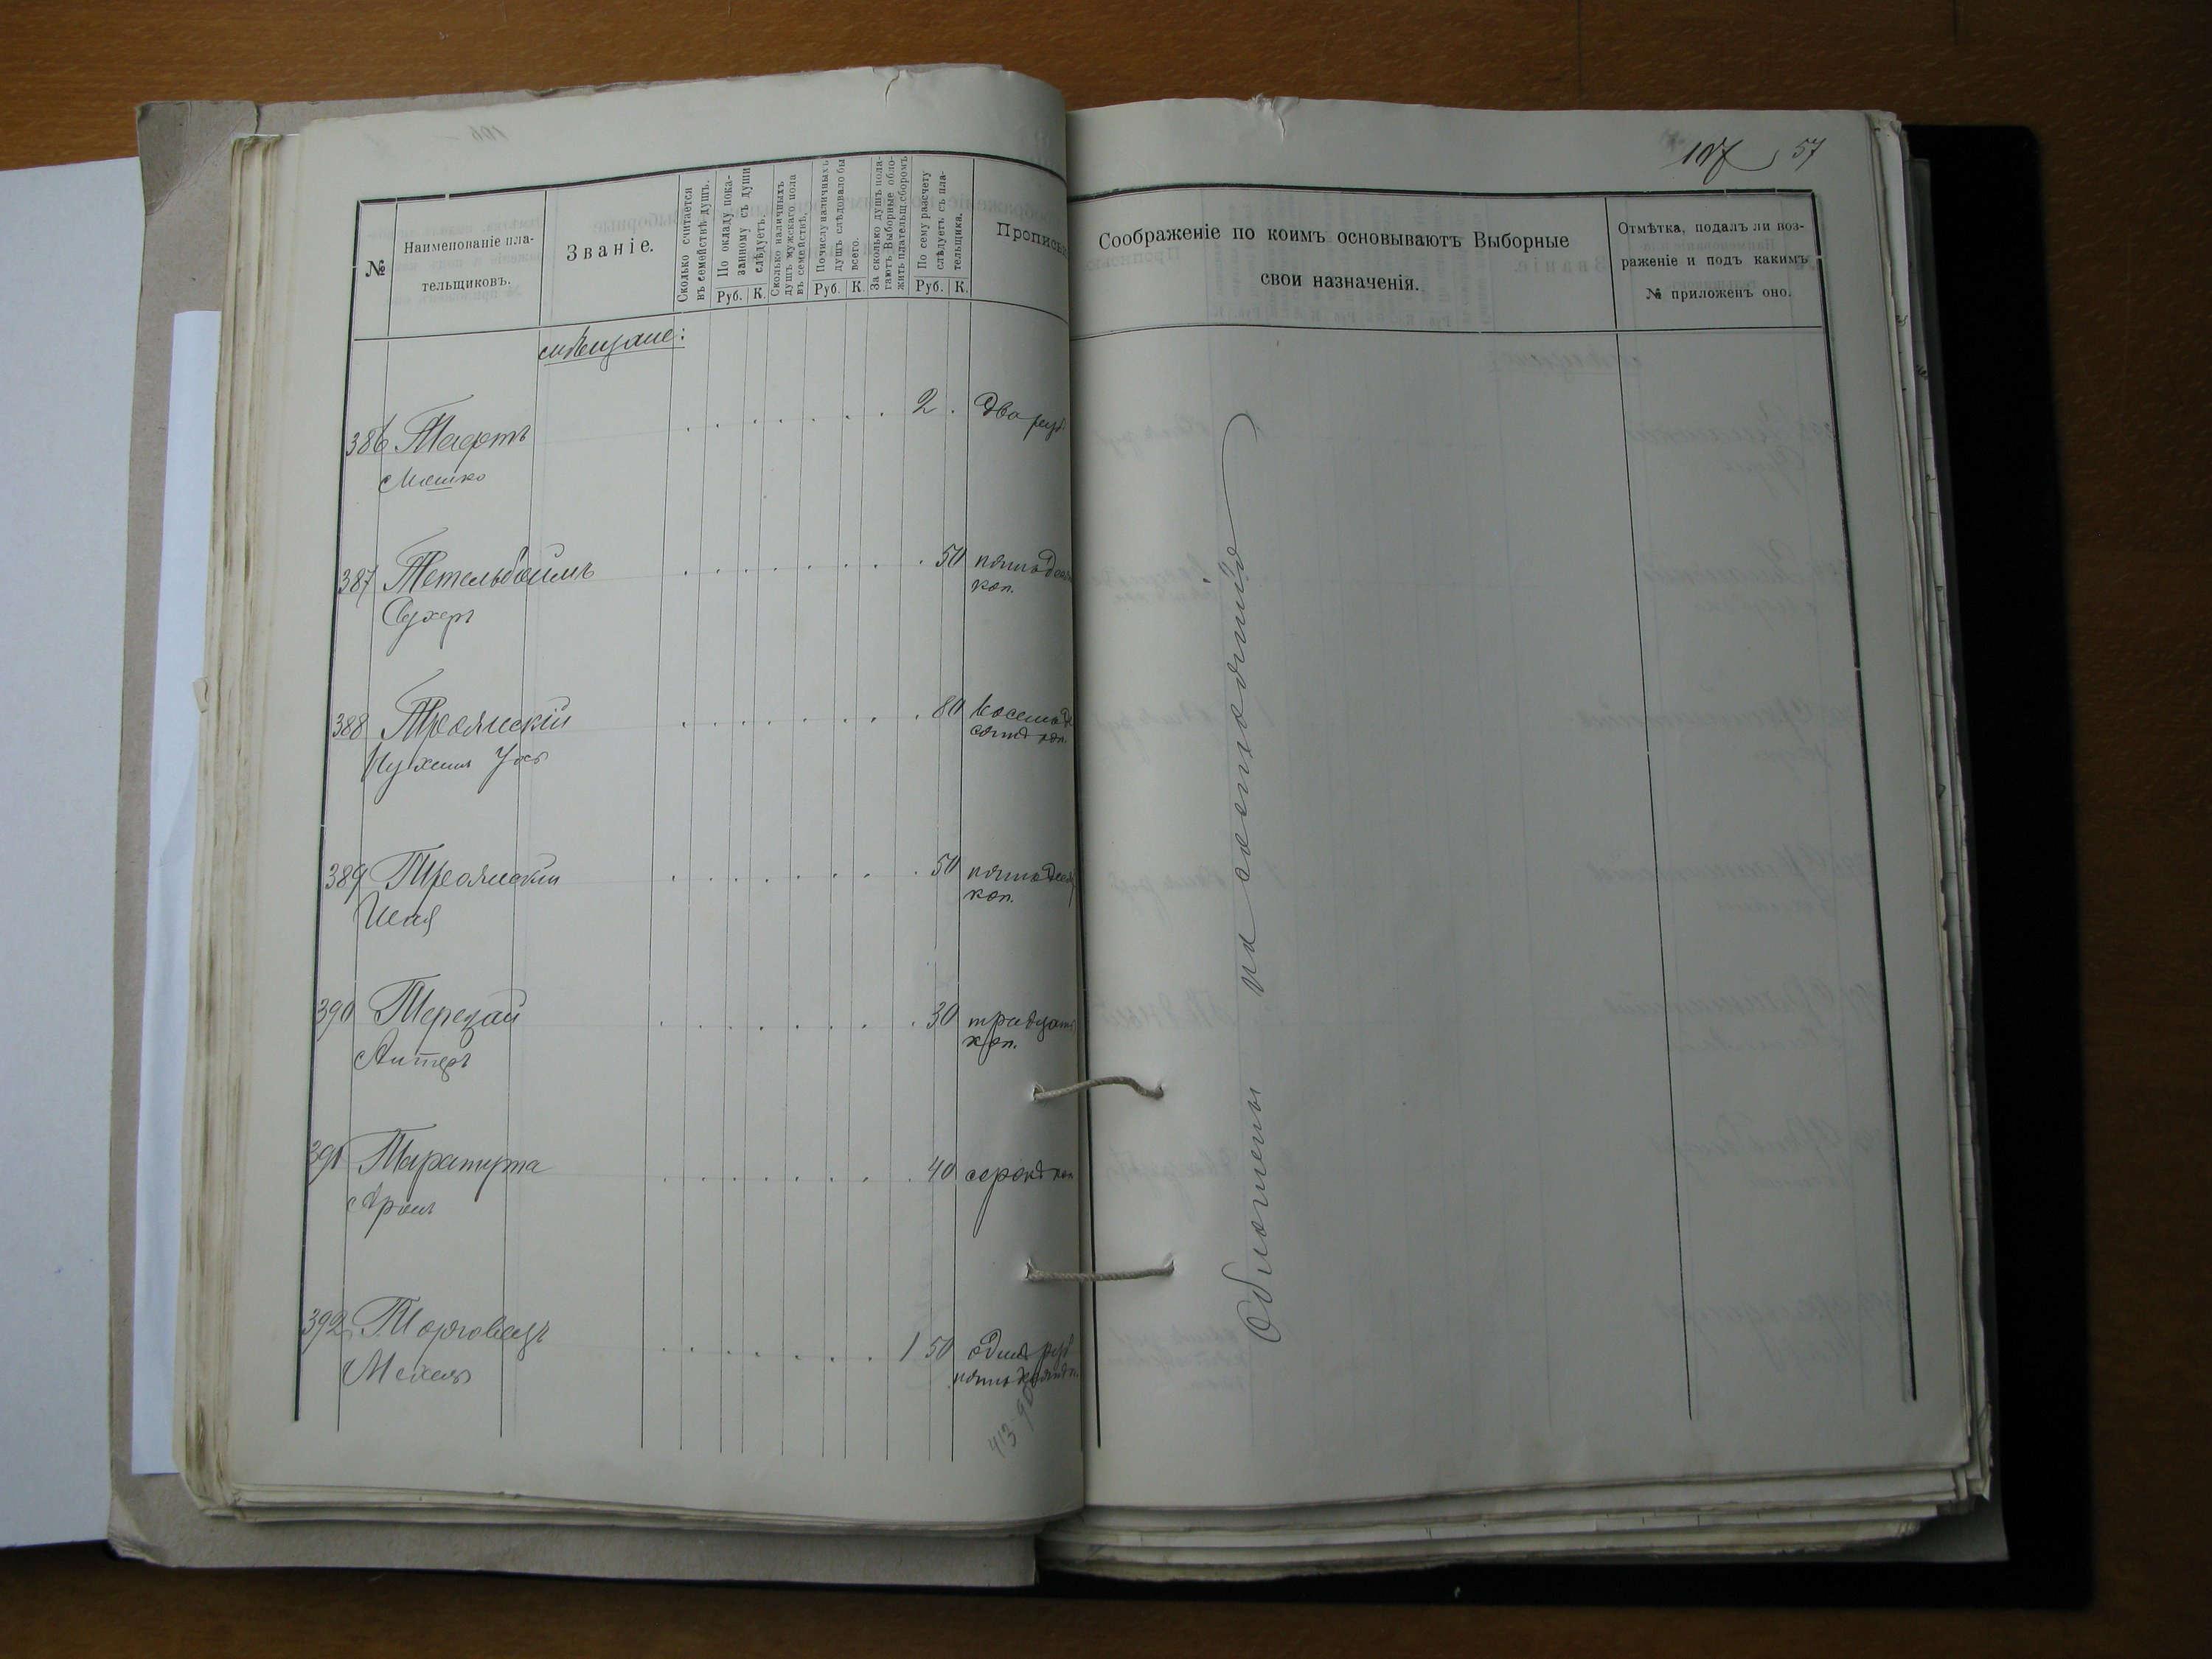 57
№
Наименованіе пла-
тельщиковъ.
Званіе.
Сколько считается
въ семействѣ душъ.
По окладу пока-
занному съ души
слѣдуетъ.
Руб. К.
Сколько наличныхъ
душъ мужскаго пола
въ семействѣ.
По числу наличныхъ
душъ слѣдовало бы
всего.
Руб. К.
За сколько душъ пола-
гаютъ Выборные обло-
жить плательщ. сборомъ
По сему разсчету
слѣдуетъ съ пла-
тельщика.
Руб. К.
Прописью
мѣщане:
386 2 два руб.
Мошко
387 Тетельбоимъ 50 пятьдеся
Сухеръ коп.
388 Троянскій 80 восемьде
сятъ коп.
389 Троянскій 50 пятьдеся
коп.
390 30 тридцать
Алтеръ коп.
391 Таратута 40 сорокъ коп.
392 Торговецъ 1 50 одинъ руб
Мехель пятьдесятъ к.
413 90
Соображеніе по коимъ основываютъ Выборные
свои назначенія.
Отмѣтка, подалъ ли воз-
раженіе и подъ какимъ
№ приложенъ оно.
Обложены по состоянію